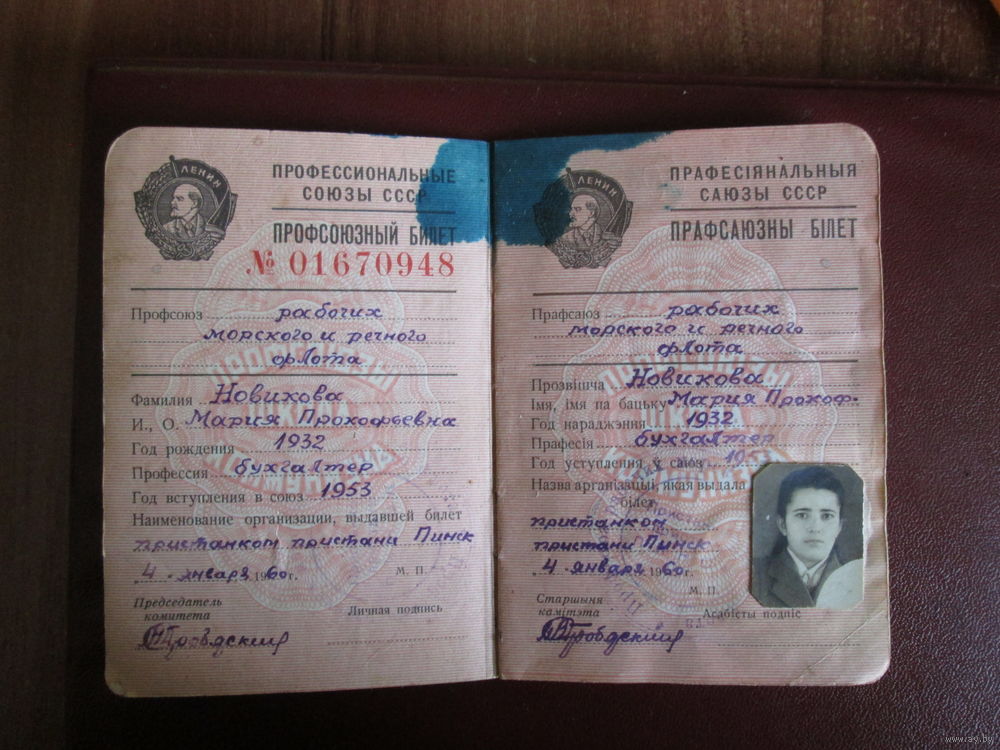 ЛЕНИН
ПРОФЕССИОНАЛЬНЫЕ
СОЮЗЫ СССР
ПРОФСОЮЗНЫЙ БИЛЕТ
№ 01670948
Профсоюз рабочих
морского и речного
флота
Фамилия Новикова
И., О. Мария Прокофьевна
Год рождения 1932
Профессия бухгалтер
Год вступления в союз 1953
Наименование организации, выдавшей билет
пристанком пристани Пинск
4 января 1960 г.
М. П.
Председатель
комитета
Личная подпись
ЛЕНИН
ПРАФЕСІЯНАЛЬНЫЯ
САЮЗЫ СССР
ПРАФСАЮЗНЫ БІЛЕТ
Прафсаюз рабочих
морского и речного
флота
Прозвішча Новикова
Імя, імя па бацьку Мария Прокоф.
Год нараджэння 1932
Прафесія бухгалтер
Год уступлення ў саюз
Назва арганізацыі, якая выдала
білет
пристанком
пристани Пинск
4 января 1960 г.
М. П.
Старшыня
камітэта
Асабісты подпіс
www.ay.by